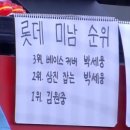 롯데 미남 순위
3위. 베이스 커버 박세웅
2위. 삼진 잡는 박세웅
1위. 김원중